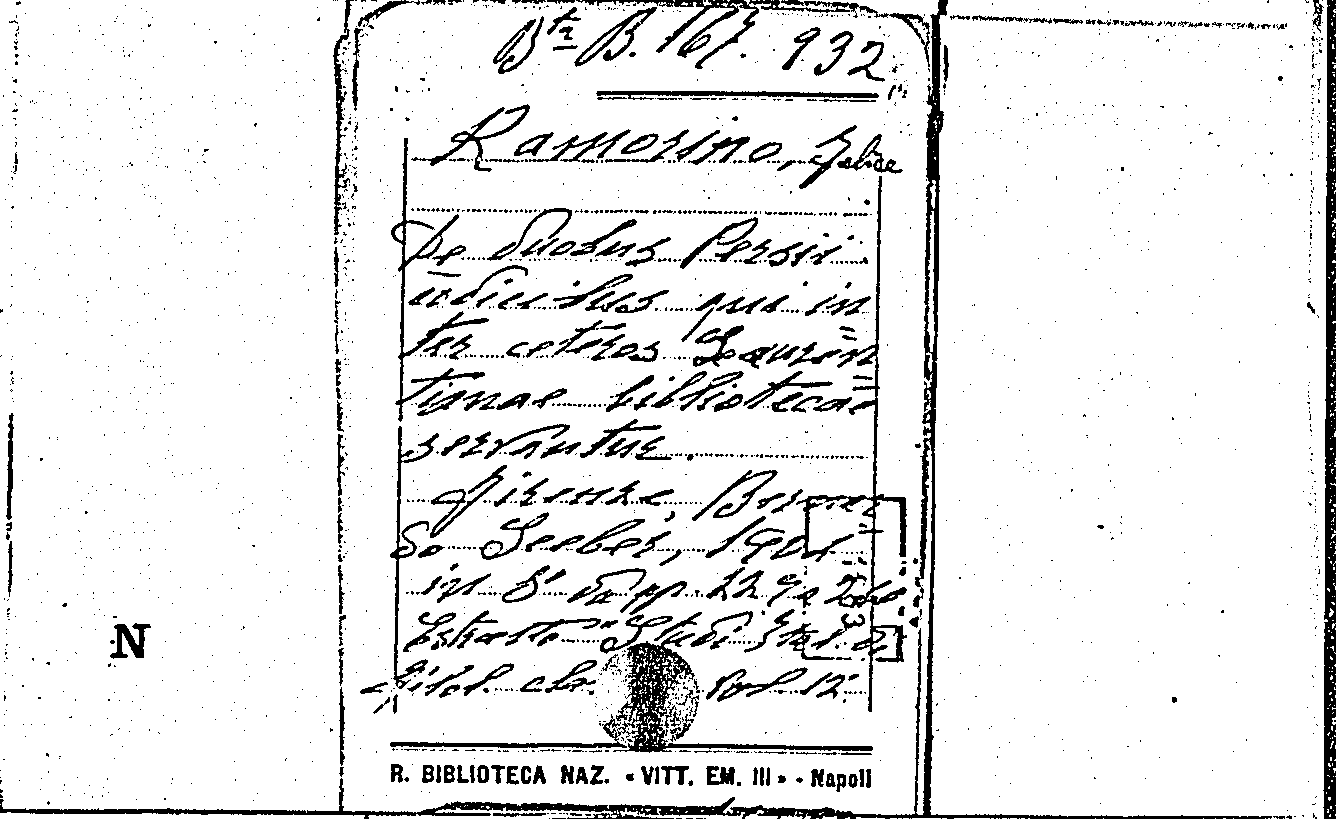 Bta B. 167. 932
Ramorino, Felice
De duobus Persii
codicibus qui in
ter ceteros Lauren
tianae bibliotecae
servantur.
Firenze, Bernar
do Seeber, 1904
in 8° da pp. 229 a 260
Estratto "Studi ital. di
Filol. cl. Vol. 12.
N
R. BIBLIOTECA NAZ. « VITT. EM. III » - Napoli